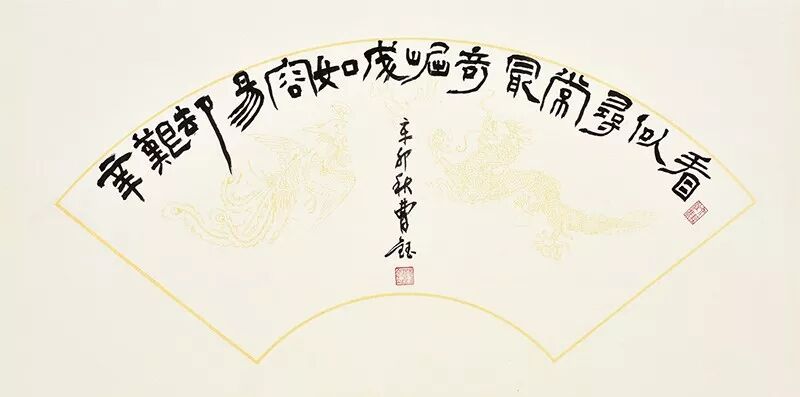 看似尋常最奇崛成如容易却艱辛
辛卯秋曹钰